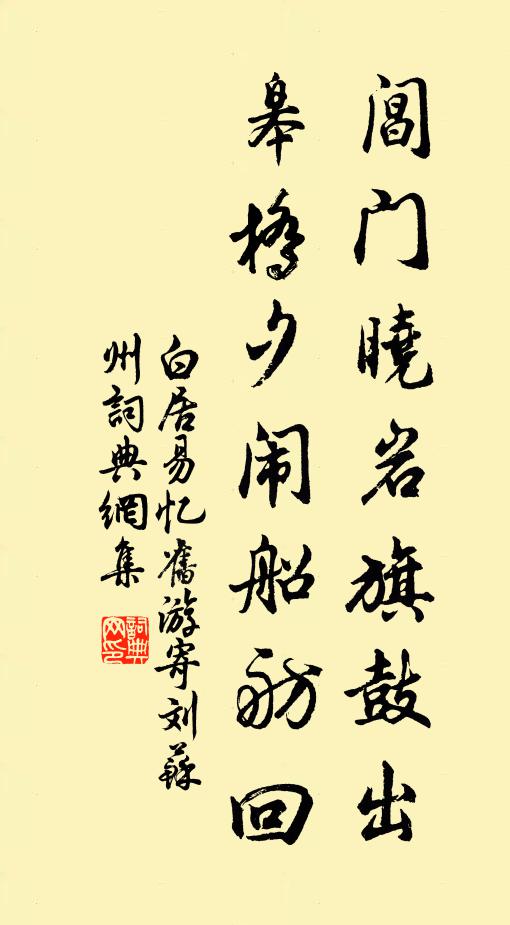 阊门曉岩旗鼓出
皋橋夕闹船舫回
白居易忆舊游寄刘蘇
州詞典網集
詞典
网印